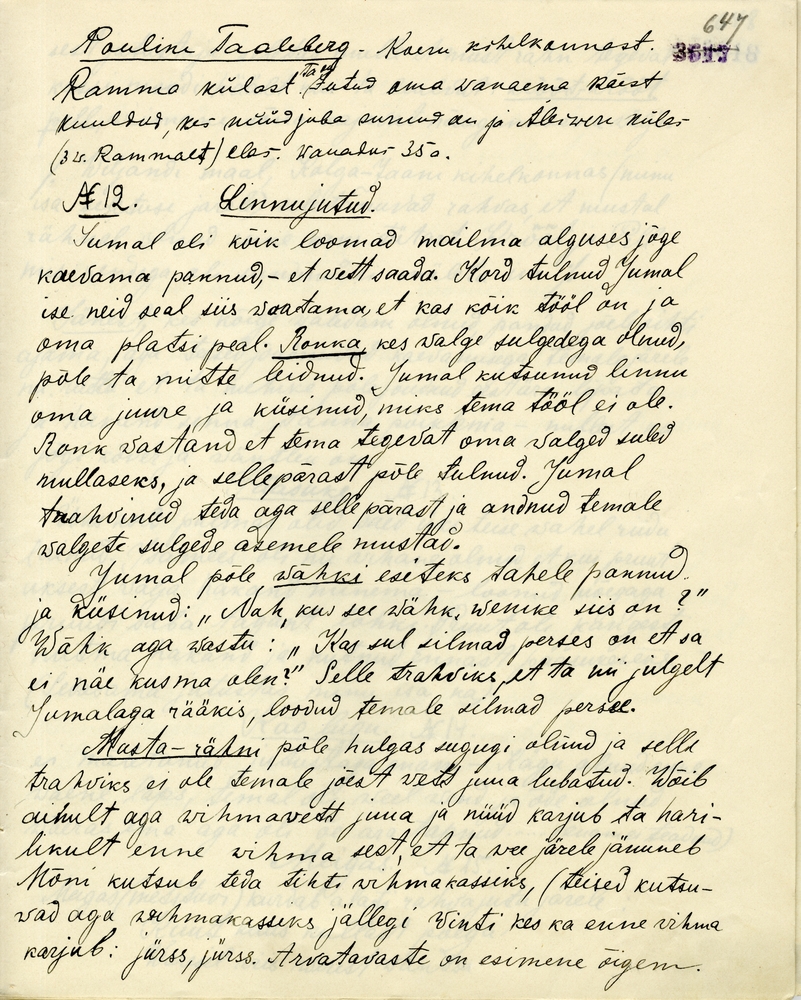 647
Pauline Taaleberg - Koeru kihelkonnast.
3677
Ramma külast. Ta on jutud oma wanaema käest
kuuldud, kes nüüd juba surnud on ja Äksiwere külas
(3 w. Rammalt) elas. Wanadus 35 a.
№ 12. Linnujutud.
Jumal oli kõik loomad mailma alguses jõge
kaevama pannud, - et vett saada. Kord tulnud Jumal
ise neid seal siis waatama, et kas kõik tööl on ja
oma platsi peal. Ronka, kes walge sulgedega olnud,
põle ta mitte leidnud. Jumal kutsunud linnu
oma juure ja küsinud, miks tema tööl ei ole.
Ronk vastand et tema tegevat oma walged suled
mullaseks, ja sellepärast põle tulnud. Jumal
trahvinud teda aga sellepärast ja andnud temale
walgete sulgede asemele mustad.
Jumal põle wähki esiteks tähele pannud
ja küsinud: „Nah, kus see wähk, wenike siis on?"
Wähk aga wastu: „Kas sul silmad perses on et sa
ei näe kus ma olen?" Selle trahviks, et ta nii julgelt
Jumalaga rääkis, loodud temale silmad perse.
Musta-rähni põle hulgas sugugi olnud ja selle
trahviks ei ole temale jõest vett juua lubatud. Wõib
ainult aga wihmavett juua ja nüüd karjub ta hari-
likult enne wihma sest, et ta wee järele jänuneb
Mõni kutsub teda tihti wihmakassiks, (teised kutsu-
wad aga wihmakassiks jällegi Winti kes ka enne vihma
karjub: jürss, jürss. Arvatavaste on esimene õigem.